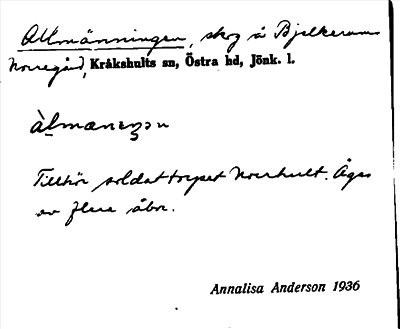 Allmänningen, skog å Bjelkerums
Norregård, Kråkshults sn, Östra hd, Jönk. l.
Tillhör soldattorpet Norrhult. Äges
av flera åbor.
Annalisa Anderson 1936